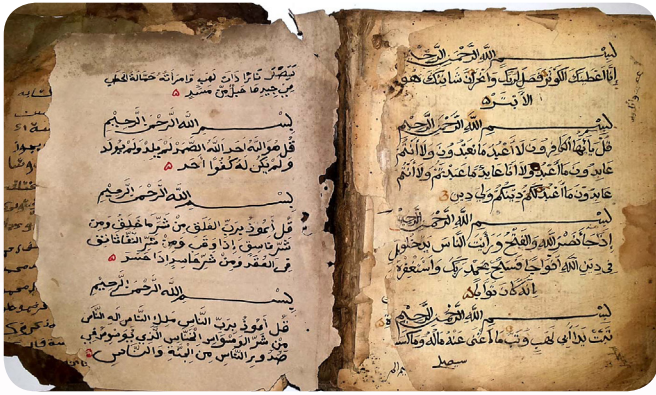 بسم الله الرحمن الرحيم
إنا أعطينك الكوثر فصل لربك وانحر إن شانئك هو
الأبتر
بسم الله الرحمن الرحيم
قل يأيها الكافرون لا أعبد ما تعبدون ولا أنتم
عابدون ما أعبد ولا أنا عابد ما عبدتم ولا أنتم
عابدون ما أعبد لكم دينكم ولي دين
بسم الله الرحمن الرحيم
إذا جاء نصر الله والفتح ورأيت الناس يدخلون
في دين الله أفواجا فسبح بحمد ربك واستغفره
إنه كان توابا
بسم الله الرحمن الرحيم
تبت يدا أبي لهب وتب ما أغنى عنه ماله وما كسب
سيصلى
سيصلى نارا ذات لهب وامرأته حمالة الحطب
في جيدها حبل من مسد ۵
بسم الله الرحمن الرحيم
قل هو الله أحد الله الصمد لم يلد ولم يولد
ولم يكن له كفوا أحد ۵
بسم الله الرحمن الرحيم
قل أعوذ برب الفلق من شر ما خلق ومن
شر غاسق إذا وقب ومن شر النفاثات
في العقد ومن شر حاسد إذا حسد ۵
بسم الله الرحمن الرحيم
قل أعوذ برب الناس ملك الناس إله الناس
من شر الوسواس الخناس الذي يوسوس في
صدور الناس من الجنة والناس ۵